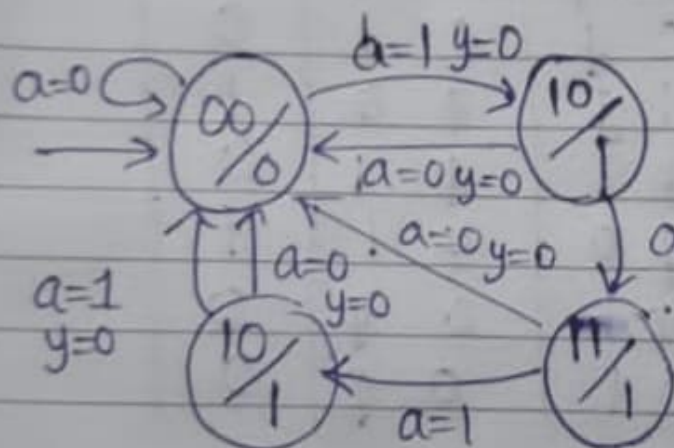 a=1 y=0
a=0
00/0
10/1
a=0 y=0
a=0 y=0
a=0
y=0
a=1
y=0
10/1
11/1
a=1